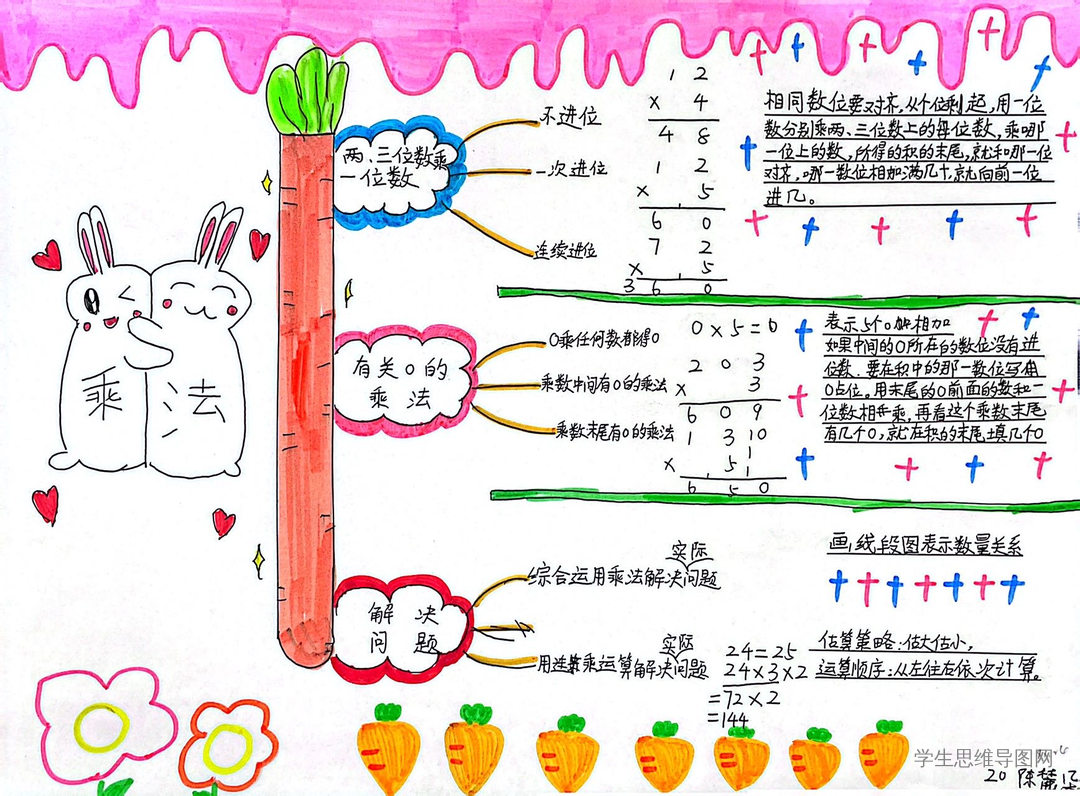 乘
法
两、三位数乘
一位数
不进位
一次进位
连续进位
1 2
× 4
4 8
1 2
× 5
6 0
7 2
× 5
3 6 0
相同数位要对齐,从个位乘起,用一位
数分别乘两、三位数上的每位数,乘哪
一位上的数,所得的积的末尾,就和那一位
对齐,哪一数位相加满几十,就向前一位
进几。
有关0的
乘法
0乘任何数都得0
乘数中间有0的乘法
乘数末尾有0的乘法
0×5=0
2 0 3
× 3
6 0 9
1 3 0
× 5
6 5 0
表示5个0相加
如果中间的0所在的数位没有进
位数.要在积中的那一数位写
0占位。用末尾的0前面的数和一
位数相乘,再看这个乘数末尾
有几个0,就在积的末尾填几个0
解决
问题
实际
综合运用乘法解决问题
画线段图表示数量关系
实际
用连乘运算解决问题
24=25
24×3×2
=72×2
=144
估算策略:估大估小,
运算顺序:从左往右依次计算。
学生思维导图网
20 陈